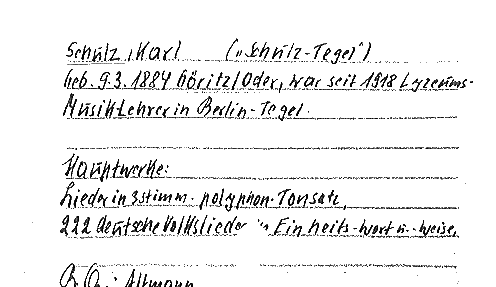 Schulz, Karl („Schulz-Tegel")
Geb. 9.3. 1884 Göritz/Oder, war seit 1918 Lyzeums-
Musiklehrer in Berlin-Tegel.
Hauptwerke:
Lieder in 3stimm. polyphon. Tonsatz,
222 deutsche Volkslieder in Einheits-wort u. -weise.
Altmann